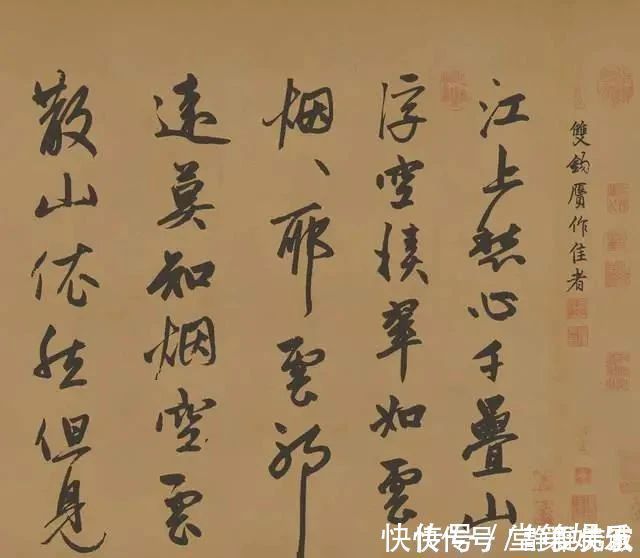 雙鈎贋作佳者
江上愁心千疊山
浮空積翠如雲
烟、耶雲耶
遠莫知烟空雲
散山依然但見
快传号/